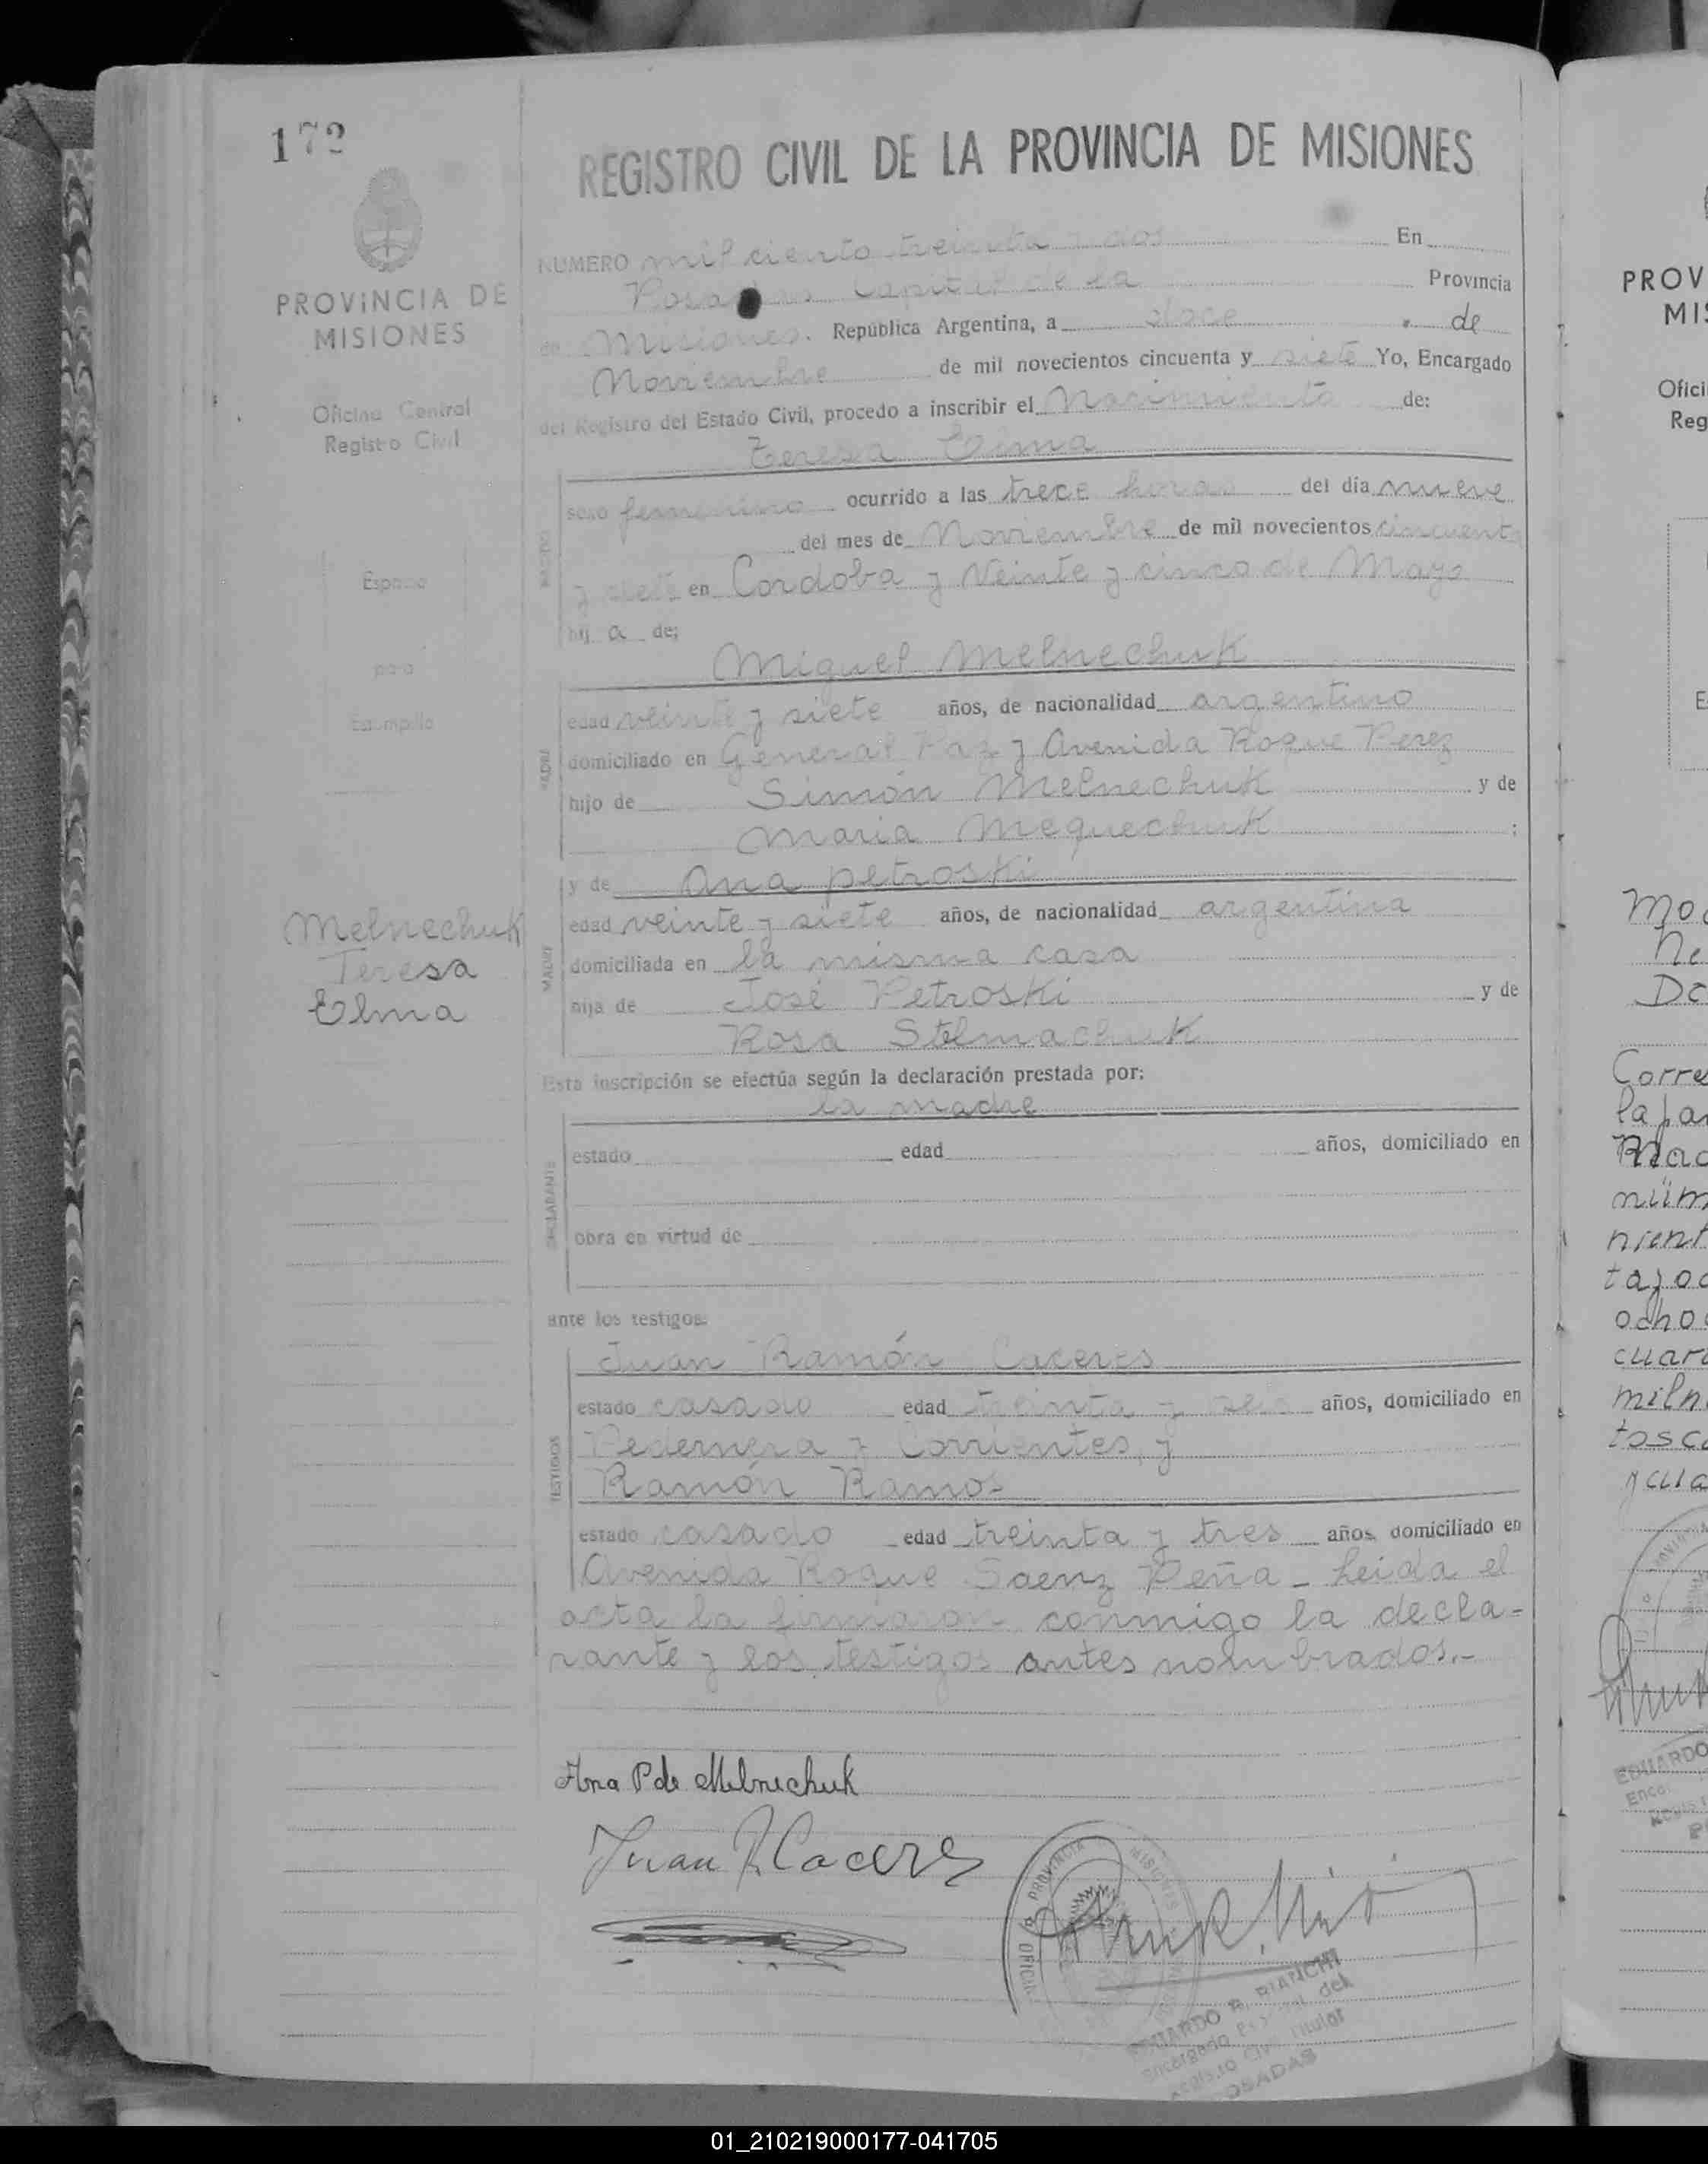 172
REGISTRO CIVIL DE LA PROVINCIA DE MISIONES
PROVINCIA DE
MISIONES
Oficina Central
Registro Civil
Espacio
para
Estampilla
Melnechuk
Teresa
Elma
NUMERO mil ciento treinta y dos En
Posadas Capital de la Provincia
de Misiones. República Argentina, a doce de
Noviembre de mil novecientos cincuenta y siete Yo, Encargado
del Registro del Estado Civil, procedo a inscribir el Nacimiento de:
Teresa Elma
sexo femenino ocurrido a las trece horas del día nueve
del mes de Noviembre de mil novecientos cincuenta
y siete en Cordoba y Veinte y cinco de Mayo
hij a de:
Miguel Melnechuk
PADRE
edad veinte y siete años, de nacionalidad argentino
domiciliado en General Paz y Avenida Roque Perez
hijo de Simón Melnechuk y de
Maria Mequechuk ;
y de Ana petroski
MADRE
edad veinte y siete años, de nacionalidad argentina
domiciliada en la misma casa
hija de José Petroski y de
Rosa Stelmachuk
Esta inscripción se efectúa según la declaración prestada por:
la madre
DECLARANTE
estado edad años, domiciliado en
obra en virtud de
ante los testigos:
Juan Ramón Caceres
TESTIGOS
estado casado edad treinta y seis años, domiciliado en
Pedernera y Corrientes, y
Ramón Ramos
estado casado edad treinta y tres años, domiciliado en
Avenida Roque Saenz Peña - Leida el
acta la firmaron conmigo la decla=
rante y los testigos antes nombrados.-
Ana P de Melnechuk
Juan R Caceres
PROVINCIA MISIONES
OFICIAL
EDUARDO R. BIANCHI
Encargado del
Registro Civil Titular
POSADAS
PROV
MIS
Ofici
Reg
Correc
milno
EDUARDO
Enca
Regist
01_210219000177-041705